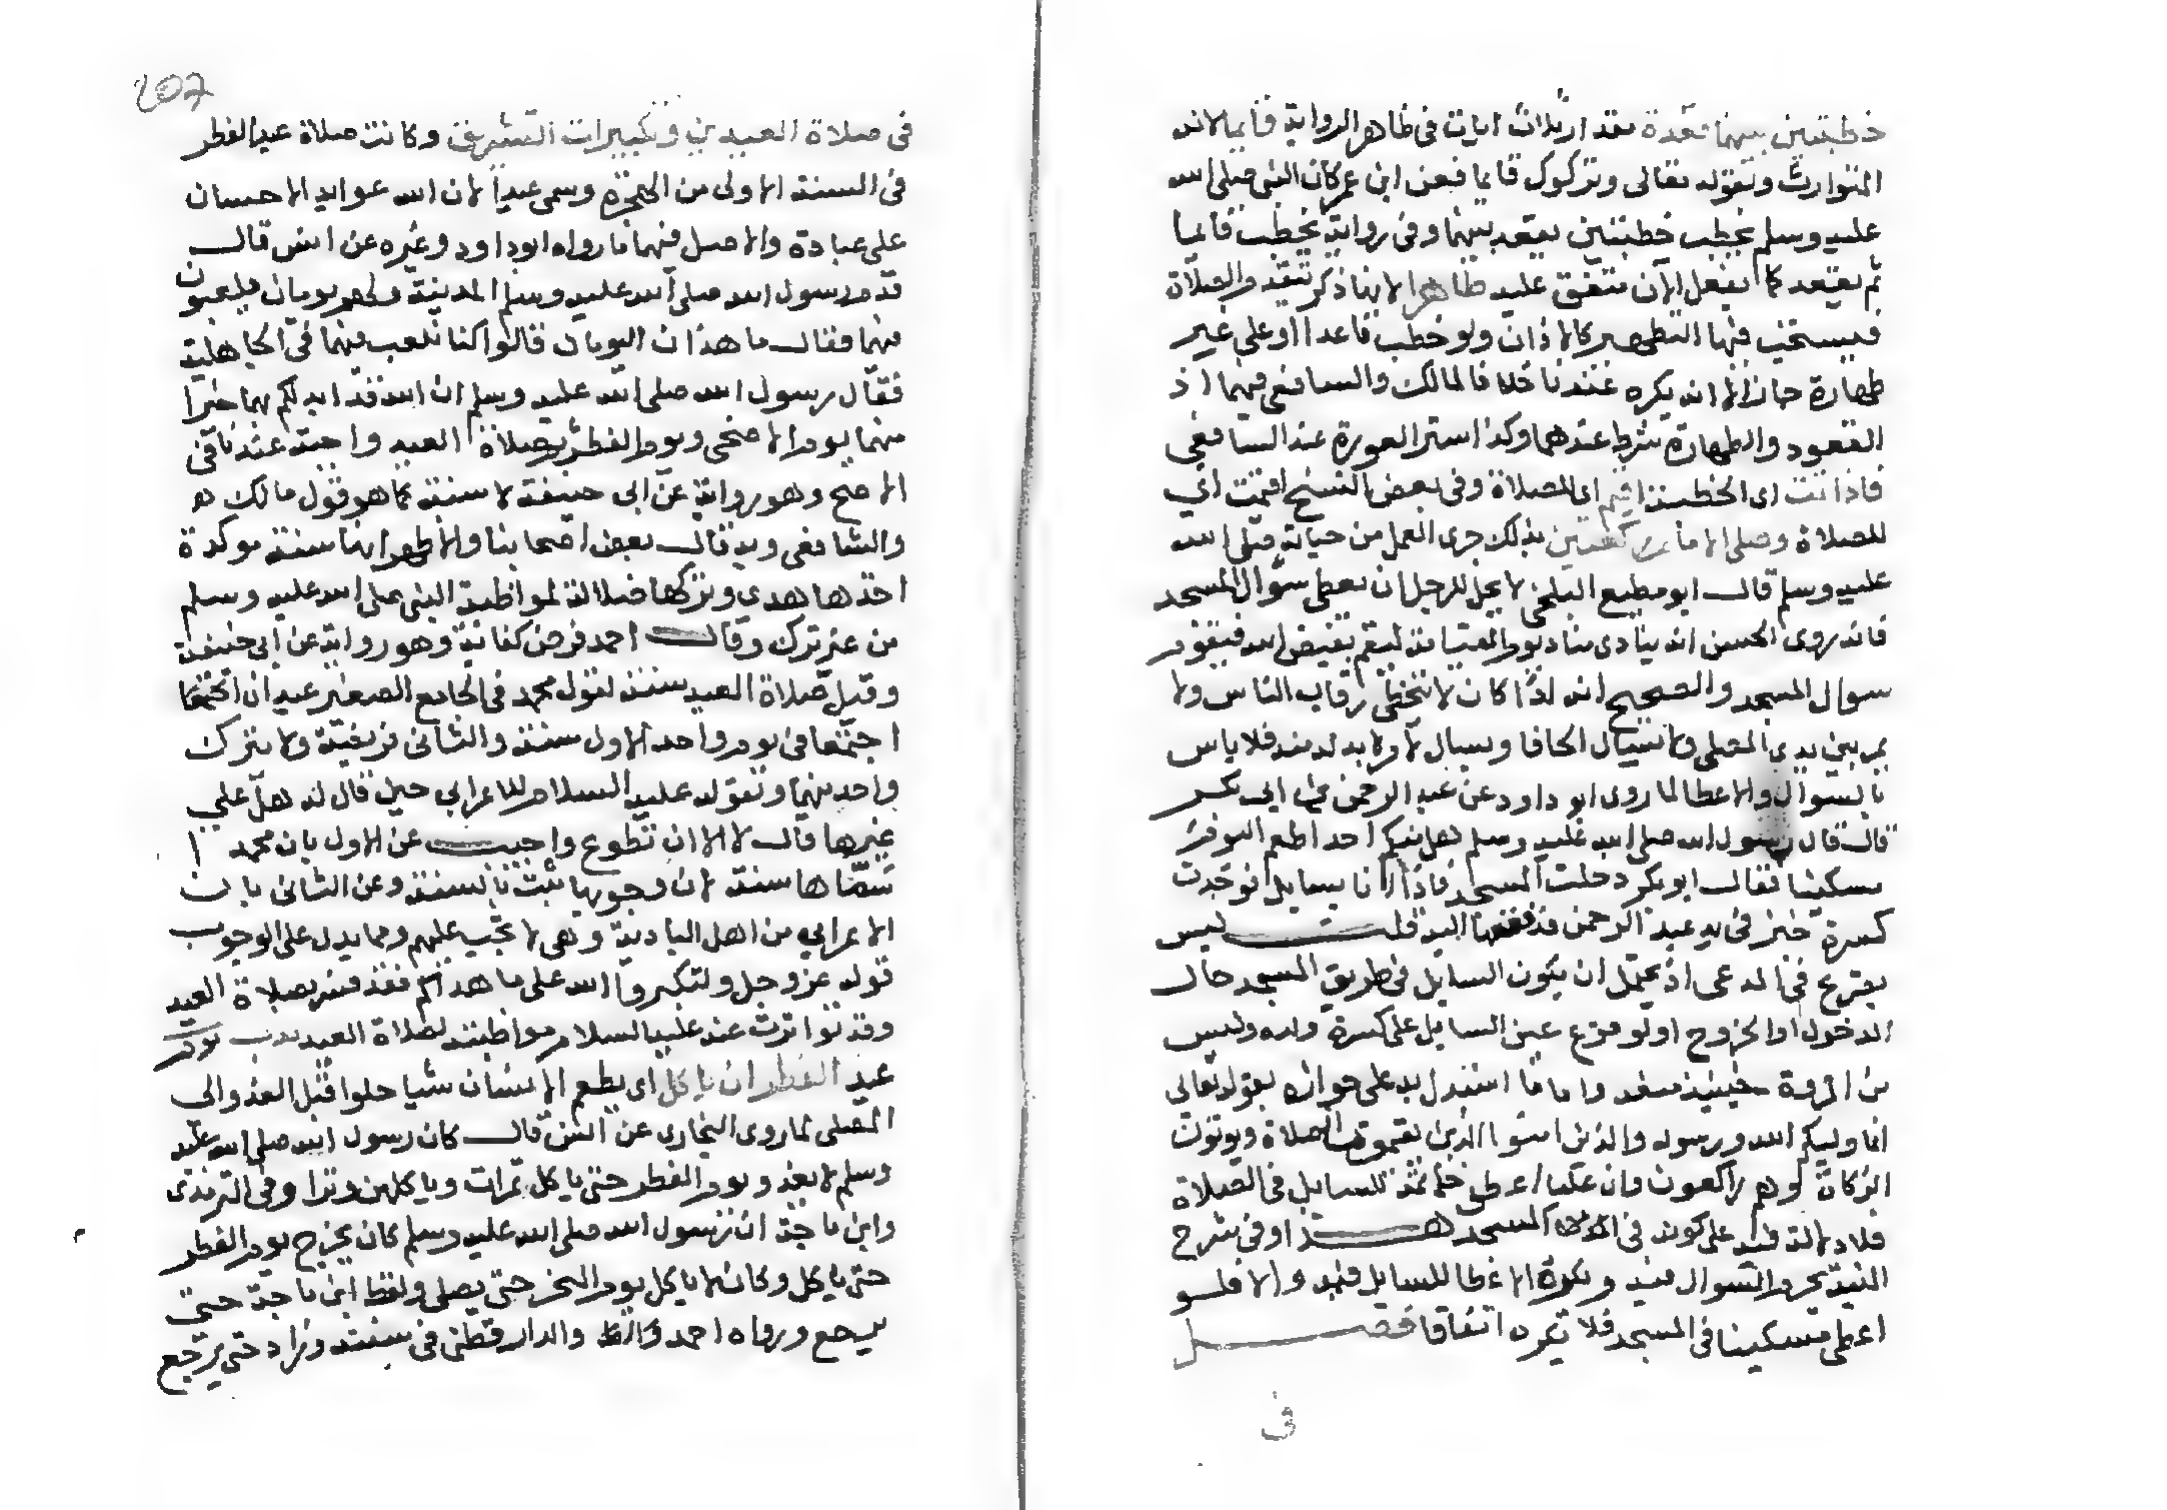 خطبتين بينهما قعدة بقدر ثلاث ايات في ظاهر الرواية قايما لانه
المتوارث ولقوله تعالى وتركوك قايما فعن ابن عمر كان النبي صلى الله
عليه وسلم يخطب خطبتين يقعد بينهما وفي رواية يخطب قايما
ثم يقعد كما يفعل الان متفق عليه طاهرا لانها ذكر تتقدم الصلاة
فيستحب فيها التطهير كالاذان ولو خطب قاعدا او على غير
طهارة جاز الا انه يكره عندنا خلافا لمالك والشافعي فيهما اذ
القعود والطهارة شرط عندهما وكذا ستر العورة عند الشافعي
فاذا تمت اي الخطبة اقيم اي للصلاة وفي بعض النسخ اقيمت اي
للصلاة وصلى الامام ركعتين بذلك جرى العمل من حياته صلى الله
عليه وسلم قال ابو مطيع البلخي لا يحل للرجل ان يعطي سؤال المسجد
فانه روى الحسن انه ينادى مناد يوم القيامة ليقم بغيض الله فيقوم
سوال المسجد والصحيح انه اذا كان لا يتخطى رقاب الناس ولا
يمر بين يدي المصلى ولا يسال الحافا ويسال لامر لا بد له منه فلا باس
بالسوال والاعطا لما روى ابو داود عن عبد الرحمن بن ابي بكر
قال قال رسول الله صلى الله عليه وسلم هل فيكم احد اطعم اليوم
مسكينا فقال ابو بكر دخلت المسجد فاذا انا بسايل فوجدت
كسرة خبز في يد عبد الرحمن فدفعتها اليه قلت ليس
بصريح في المدعى اذ يحتمل ان يكون السايل في طريق المسجد حال
الدخول او الخروج او لو فرض عين السايل على كسرة وليس
من المروة حينيذ منعه واما ما استدل به على جوازه بقوله تعالى
انما وليكم الله ورسوله والذين امنوا الذين يقيمون الصلاة ويوتون
الزكاة وهم راكعون وان عليا اعطى خاتمه للسايل في الصلاة
فلا دلالة فيه على كونه في المسجد هذا وفي شرح
النية يحرم السوال فيه ويكره الاعطا للسايل فيه والا فلو
اعطى مسكينا في المسجد فلا يكره اتفاقا فصل
في
207
في صلاة العيدين وتكبيرات التشريق وكانت صلاة عيد الفطر
في السنة الاولى من الهجرة وسمي عيدا لان لله عوايد الاحسان
على عباده والاصل فيهما ما رواه ابو داود وغيره عن انس قال
قدم رسول الله صلى الله عليه وسلم المدينة ولهم يومان يلعبون
فيهما فقال ما هذان اليومان قالوا كنا نلعب فيهما في الجاهلية
فقال رسول الله صلى الله عليه وسلم ان الله قد ابدلكم بهما خيرا
منهما يوم الاضحى ويوم الفطر صلاة العيد واجبة عندنا في
الاصح وهو رواية عن ابي حنيفة لا سنة كما هو قول مالك
والشافعي وبه قال بعض اصحابنا والاظهر انها سنة موكدة
اخذها هدى وتركها ضلالة لمواظبة النبي صلى الله عليه وسلم
من غير ترك وقال احمد فرض كفاية وهو رواية عن ابي حنيفة
وقيل صلاة العيد سنة لقول محمد في الجامع الصغير عيدان اجتمعا
اجتمعا في يوم واحد الاول سنة والثاني فريضة ولا يترك
واحد منهما ولقوله عليه السلام للاعرابي حين قال له هل علي
غيرها قال لا الا ان تطوع واجيب عن الاول بان محمدا
سماها سنة لان وجوبها ثبت بالسنة وعن الثاني بان
الاعرابي من اهل البادية وهي لا تجب عليهم ومما يدل على الوجوب
قوله عز وجل ولتكبروا الله على ما هداكم فقد فسر بصلاة العيد
وقد تواترت عنه عليه السلام مواظبته لصلاة العيد ندب يوم
عيد الفطر ان ياكل اي يطعم الانسان شيا حلوا قبل الغدو الى
المصلى لما روى البخاري عن انس قال كان رسول الله صلى الله عليه
وسلم لا يغدو يوم الفطر حتى ياكل تمرات وياكلهن وترا وفي الترمذى
وابن ماجة ان رسول الله صلى الله عليه وسلم كان لا يخرج يوم الفطر
حتى ياكل وكان لا ياكل يوم النحر حتى يصلي ولفظ ابن ماجة حتى
يرجع ورواه احمد والدار قطني في سننه وزاد حتى يرجع